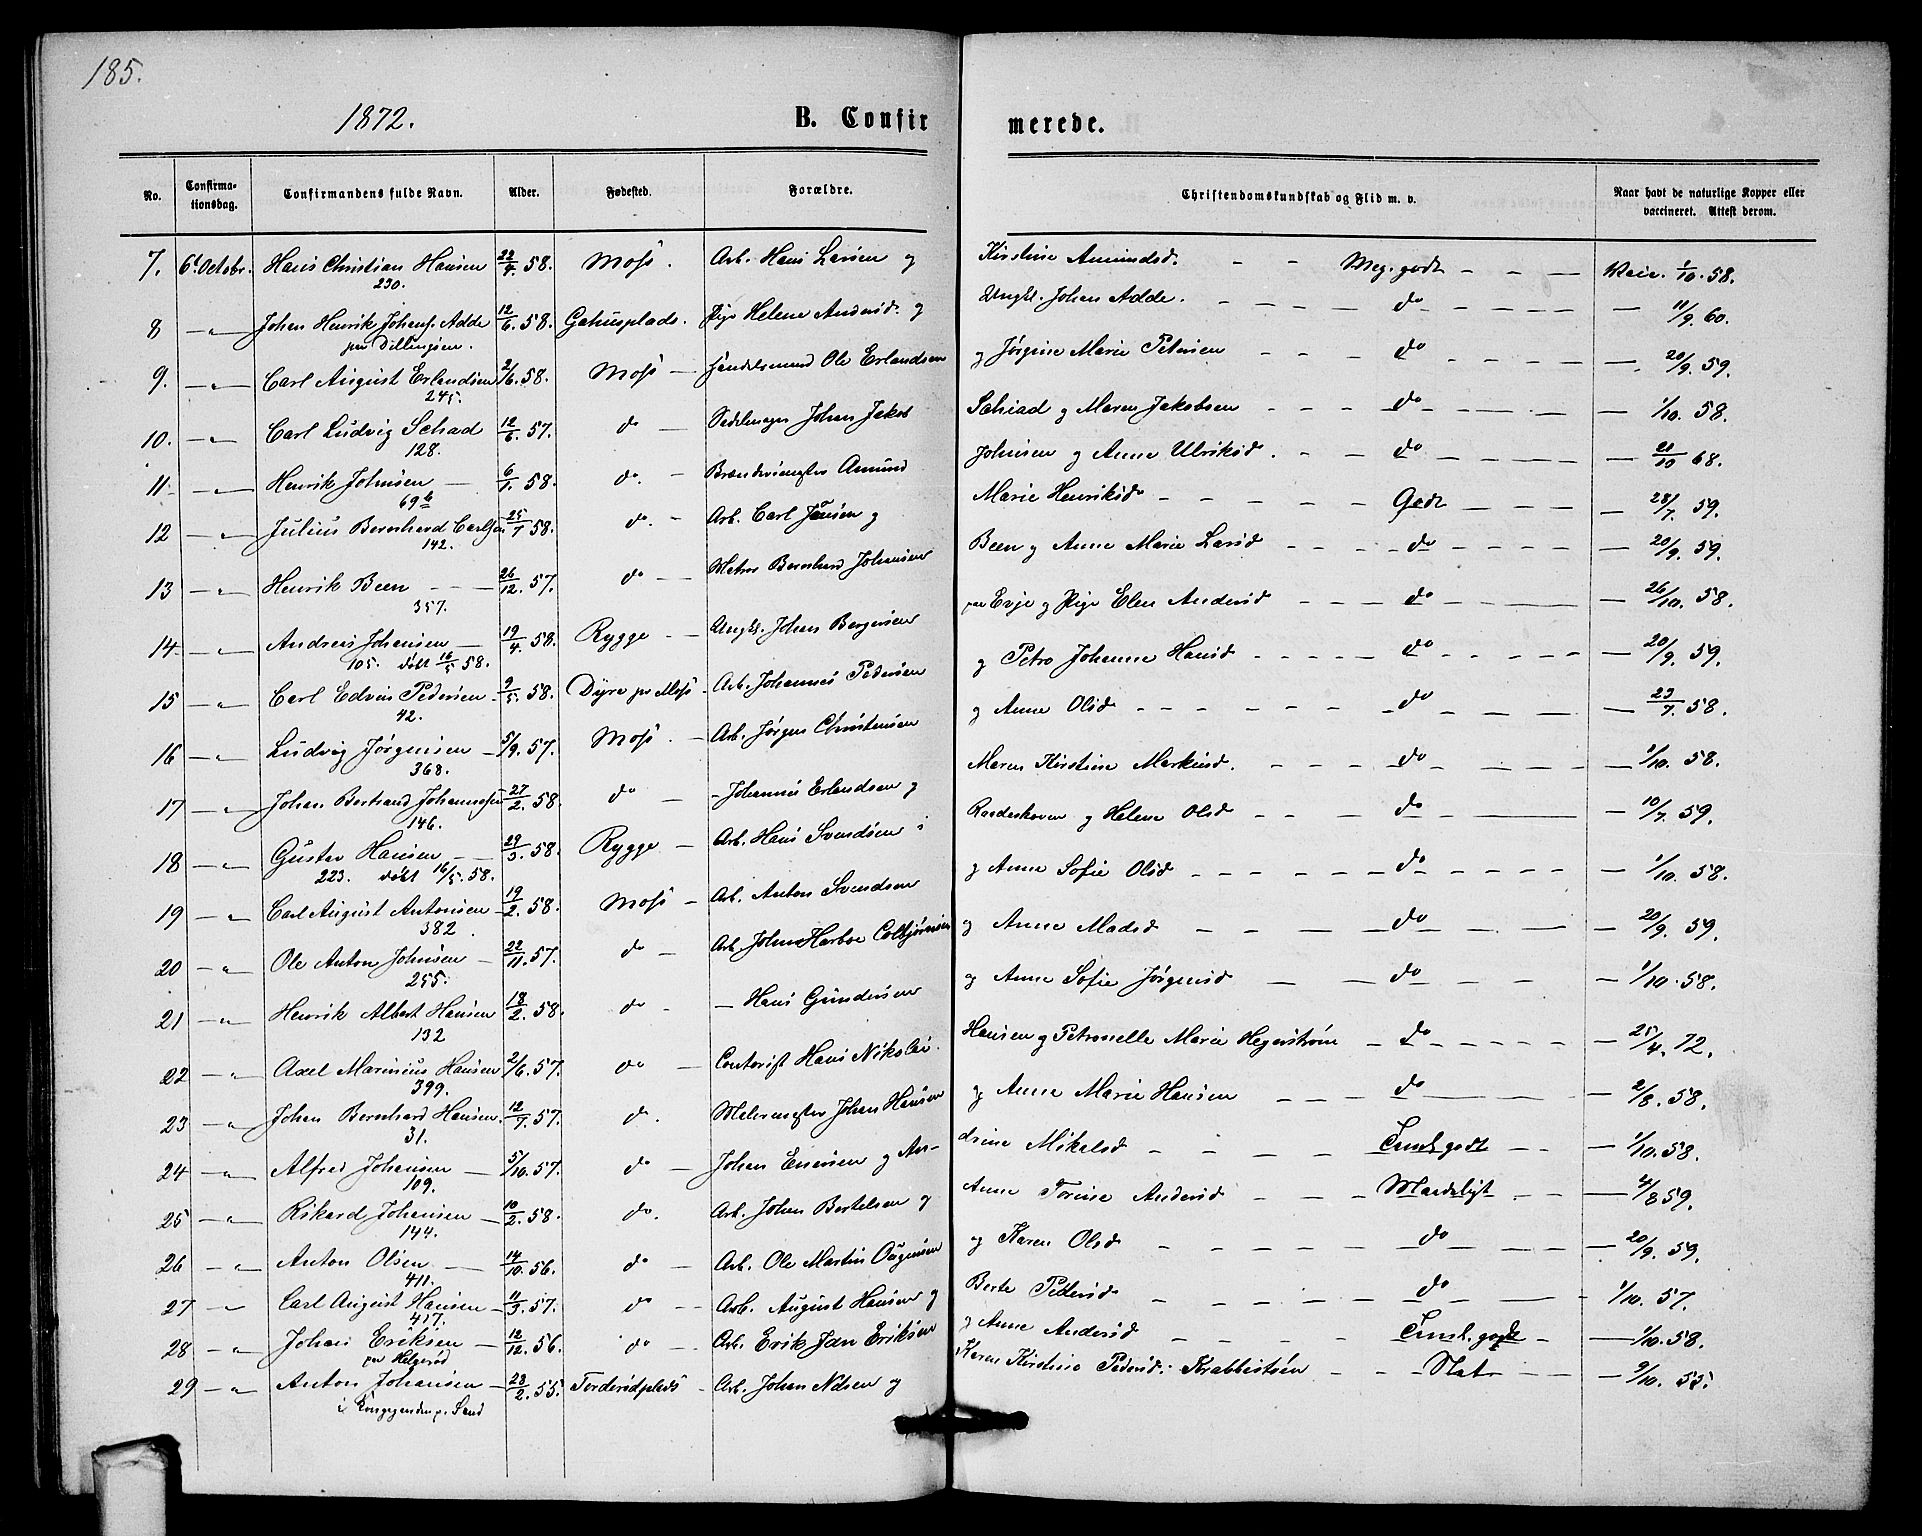 185.
1872.
B. Confirmerede.
No. Confirmationsdag. Confirmandens fulde Navn. Alder. Fødested. Forældre. Christendomskundskab og Flid m. v. Naar havt de naturlige Kopper eller vaccineret. Attest derom.
7. 6t Octobr. Hans Christian Hansen 22/4 58. Moss. Arb. Hans Larsen og Kirstine Amundsd. - - Meg. godt - - - Vacc. 1/10. 58.
230.
8 - " - Johan Henrik Johans. Adde 12/6 58. Gahusplads. Pige Helene Andersd. og Ungk. Johan Adde. - - - - do - - - - 11/9. 60.
paa Dillingøen.
9. - " - Carl August Erlandsen 2/6 58. Moss - Handelsmand Ole Erlandsen og Jørgine Marie Petersen - - - do - - - - 20/9. 59.
245.
10. - " - Carl Ludvig Schad 12/6 57. do - Sadelmager Johan Jakob Schad og Maren Jakobsen - - - do - - - 1/10. 58.
128.
11. - " - Henrik Johnsen - 6/1 58. do. - Brændevinsmester Amund Johnsen og Anne Ulriksd. - - - do - - - 21/10 68.
69 b
12 - " - Julius Bernhard Carlsen 25/7 58. do. - Arb. Carl Jansen og Marie Henriksd. - - - - Godt - - - 28/7. 59.
142.
13 - " - Henrik Been - - - 26/12. 57. do - Matros Bernhard Johansen Been og Anne Marie Larsd - - - - do - - - 20/9. 59.
357.
14. - " - Andreas Johansen - 19/4. 58. Rygge - - Ungk. Johan Bergersen paa Evje og Pige Elen Andersd - - - - do - - - 26/10. 58.
105. døbt 16/5 58.
15 - " - Carl Edvin Pedersen - 9/5. 58. Dyre pr Moss - Arb. Johannes Pedersen og Petro Johanne Hansd - - - - - do - - - 20/9. 59.
42.
16 - " - Ludvig Jørgensen - 5/9. 57. Moss. - Arb. Jørgen Christensen og Anne Olsd - - - - - - do - - - 23/7. 58.
368.
17 - " - Johan Bertrand Johannessen 27/2. 58. do - - Johannes Erlandsen og Maren Kirstine Markusd. - - - - do - - - 1/10. 58.
146.
18 - " - Gustav Hansen - - 29/3. 58. Rygge - Arb. Hans Svendsen i Randeskoven og Helene Olsd - - - - do - - - 10/7. 59.
223. døbt 16/5. 58.
19 - " - Carl August Antonsen - 19/2. 58. Moss - Arb. Anton Svendsen og Anne Sofie Olsd - - - - - do - - - 1/10. 58.
382
20 - " - Ole Anton Johnsen - 22/11. 57. do - Arb. John Harboe Colbjørnsen og Anne Madsd - - - - - do - - - 20/9. 59.
255.
21 - " - Henrik Albert Hansen 18/2. 58. do - - Hans Gundersen og Anne Sofie Jørgensd - - - - do - - - 1/10. 58.
132
22 - " - Axel Marinius Hansen 2/6. 57. do - Contorist Hans Nikolai Hansen og Petronelle Marie Hegerstrøm - do - - - 25/4. 72.
399.
23 - " - Johan Bernhard Hansen. 12/7. 57. do. Malermester Johan Hansen og Anne Marie Hansen - - - - do - - - 2/8. 58.
31.
24 - " - Alfred Johansen - 5/10. 57. do - Johan Enersen og Andrine Mikelsd - - - - Temlgodt - - - 1/10. 58.
109.
25 - " - Rikard Johansen - 10/2. 58. do. Arb. Johan Bertelsen og Anne Torine Andersd - - - Maadeligt - - - 4/8 59.
144.
26 - " - Anton Olsen - - 14/10. 56. do - Arb. Ole Martin Ougensen og Karen Olsd - - - - - do - - - 20/9. 59.
411.
27 - " Carl August Hansen - 11/3. 57. do - - Arb. August Hansen og Berte Pedersd - - - - - do - - - 1/10. 57.
417.
28 - " - Johan Eriksen - 12/12. 56. do - Arb. Erik Jan Eriksen og Anne Andersd - - - - - Temlgodt - - 1/10. 58.
pa Helgerød
29 - " - Anton Johansen - 23/2. 55. Torderødplads - Arb. Johan Nilsen og Karen Kirstine Pedersd. Krabbestøen - - - Slet - - - 9/10. 55.
i Kongegaarden p. Sand